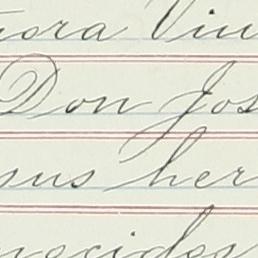 ora Viu
Don Jos
sus her
nocidos